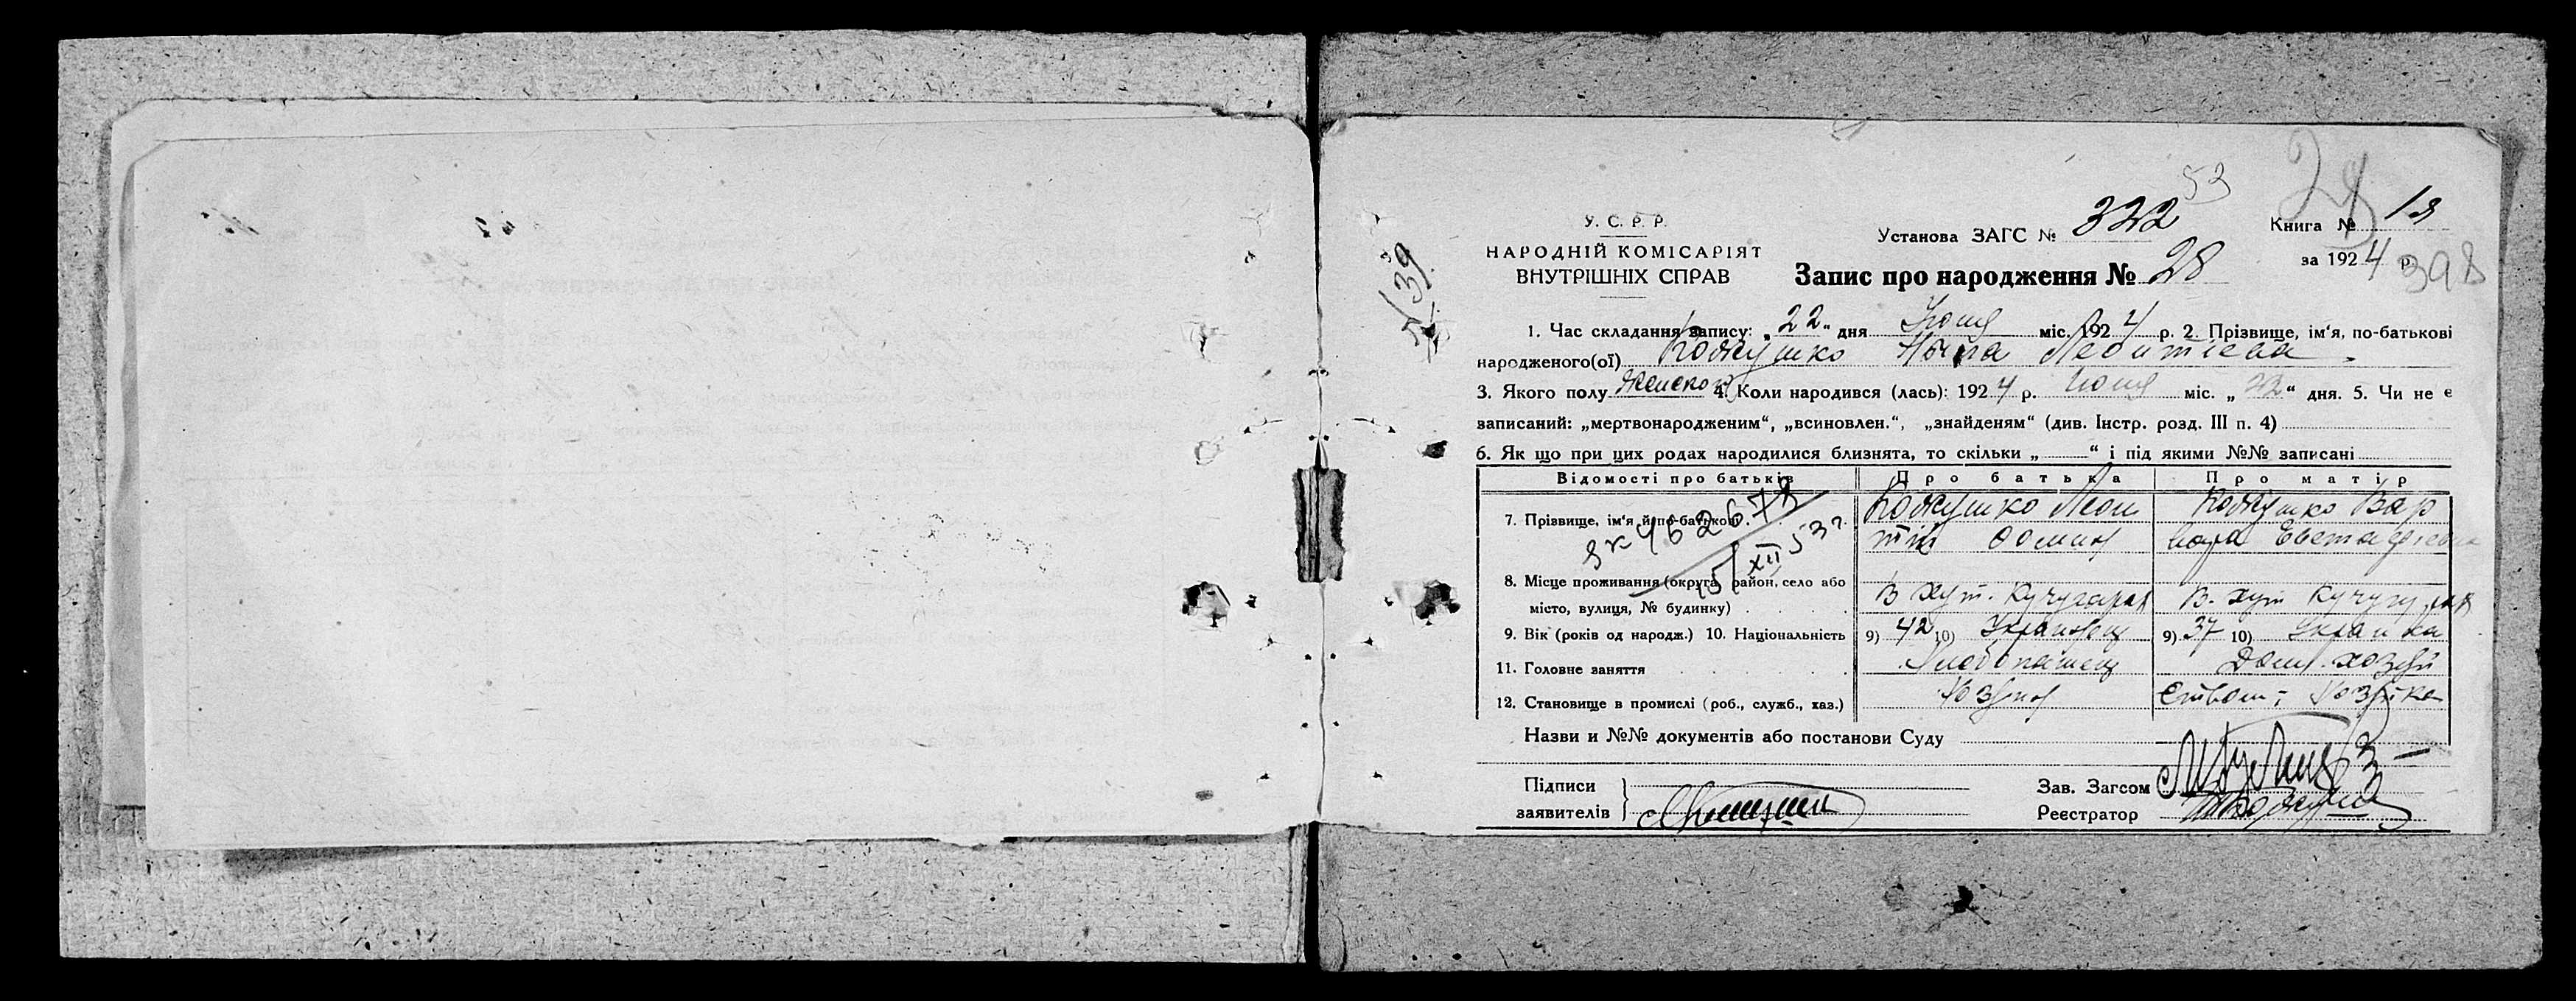 53
24
У. С. Р. Р.
НАРОДНІЙ КОМІСАРІЯТ
ВНУТРІШНІХ СПРАВ
Установа ЗАГС № 322
Книга № 1я
за 1924 р.
398
Запис про народження № 28
1. Час складання запису: „22“ дня Июня міс. 1924 р. 2. Прізвище, ім‘я, по-батькові
народженого(ої) Кожушко Леонтіева
3. Якого полу Женского 4. Коли народився (лась): 1924 р. Июня міс. „22“ дня. 5. Чи не є
записаний: „мертвонародженим“, „всиновлен.“, „знайденям“ (див. Інстр. розд. III п. 4)
6. Як що при цих родах народилися близнята, то скільки „ “ і під якими №№ записані
Відомості про батьків Про батька Про матір
7. Прізвище, ім‘я й по-батькові Кожушко Леон Кожушко Вар
тій вара Евстафіевна
462678
5/XII 53 г.
8. Місце проживання (округа, район, село або
місто, вулиця, № будинку) В хут. Кучугарах В. хут Кучугурах
9. Вік (років од народж.) 10. Національність 9) 42 10) Украинец 9) 37 10) Украинка
11. Головне заняття Хлебопашец Дом. хозяй
12. Становище в промислі (роб., служб., хаз.) Хозяин ством; Хозяйка
Назви и №№ документів або постанови Суду
Підписи
заявителів
Зав. Загсом
Реєстратор